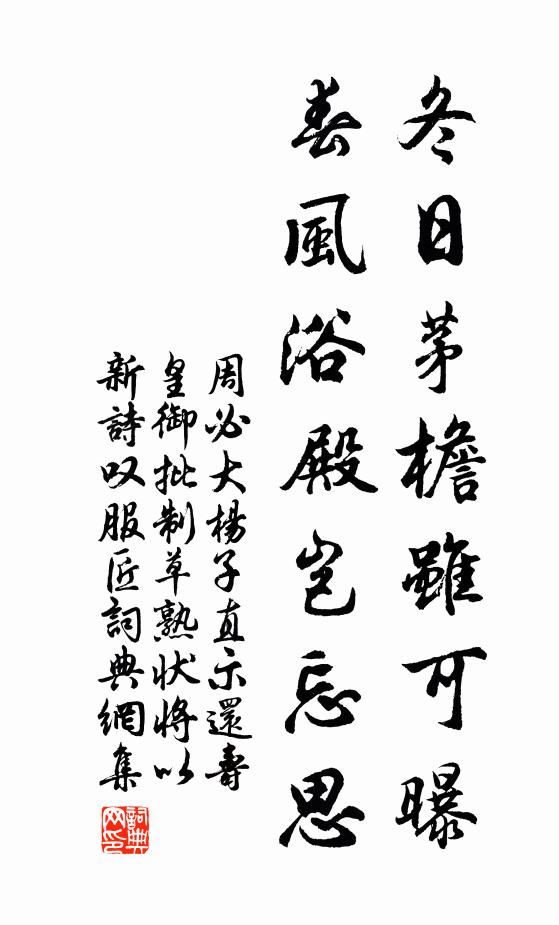 冬日茅檐雖可曝
春風浴殿豈忘思
周必大楊子直示還壽
皇御批制草熟狀將以
新詩叹服匠詞典網集
詞典网印